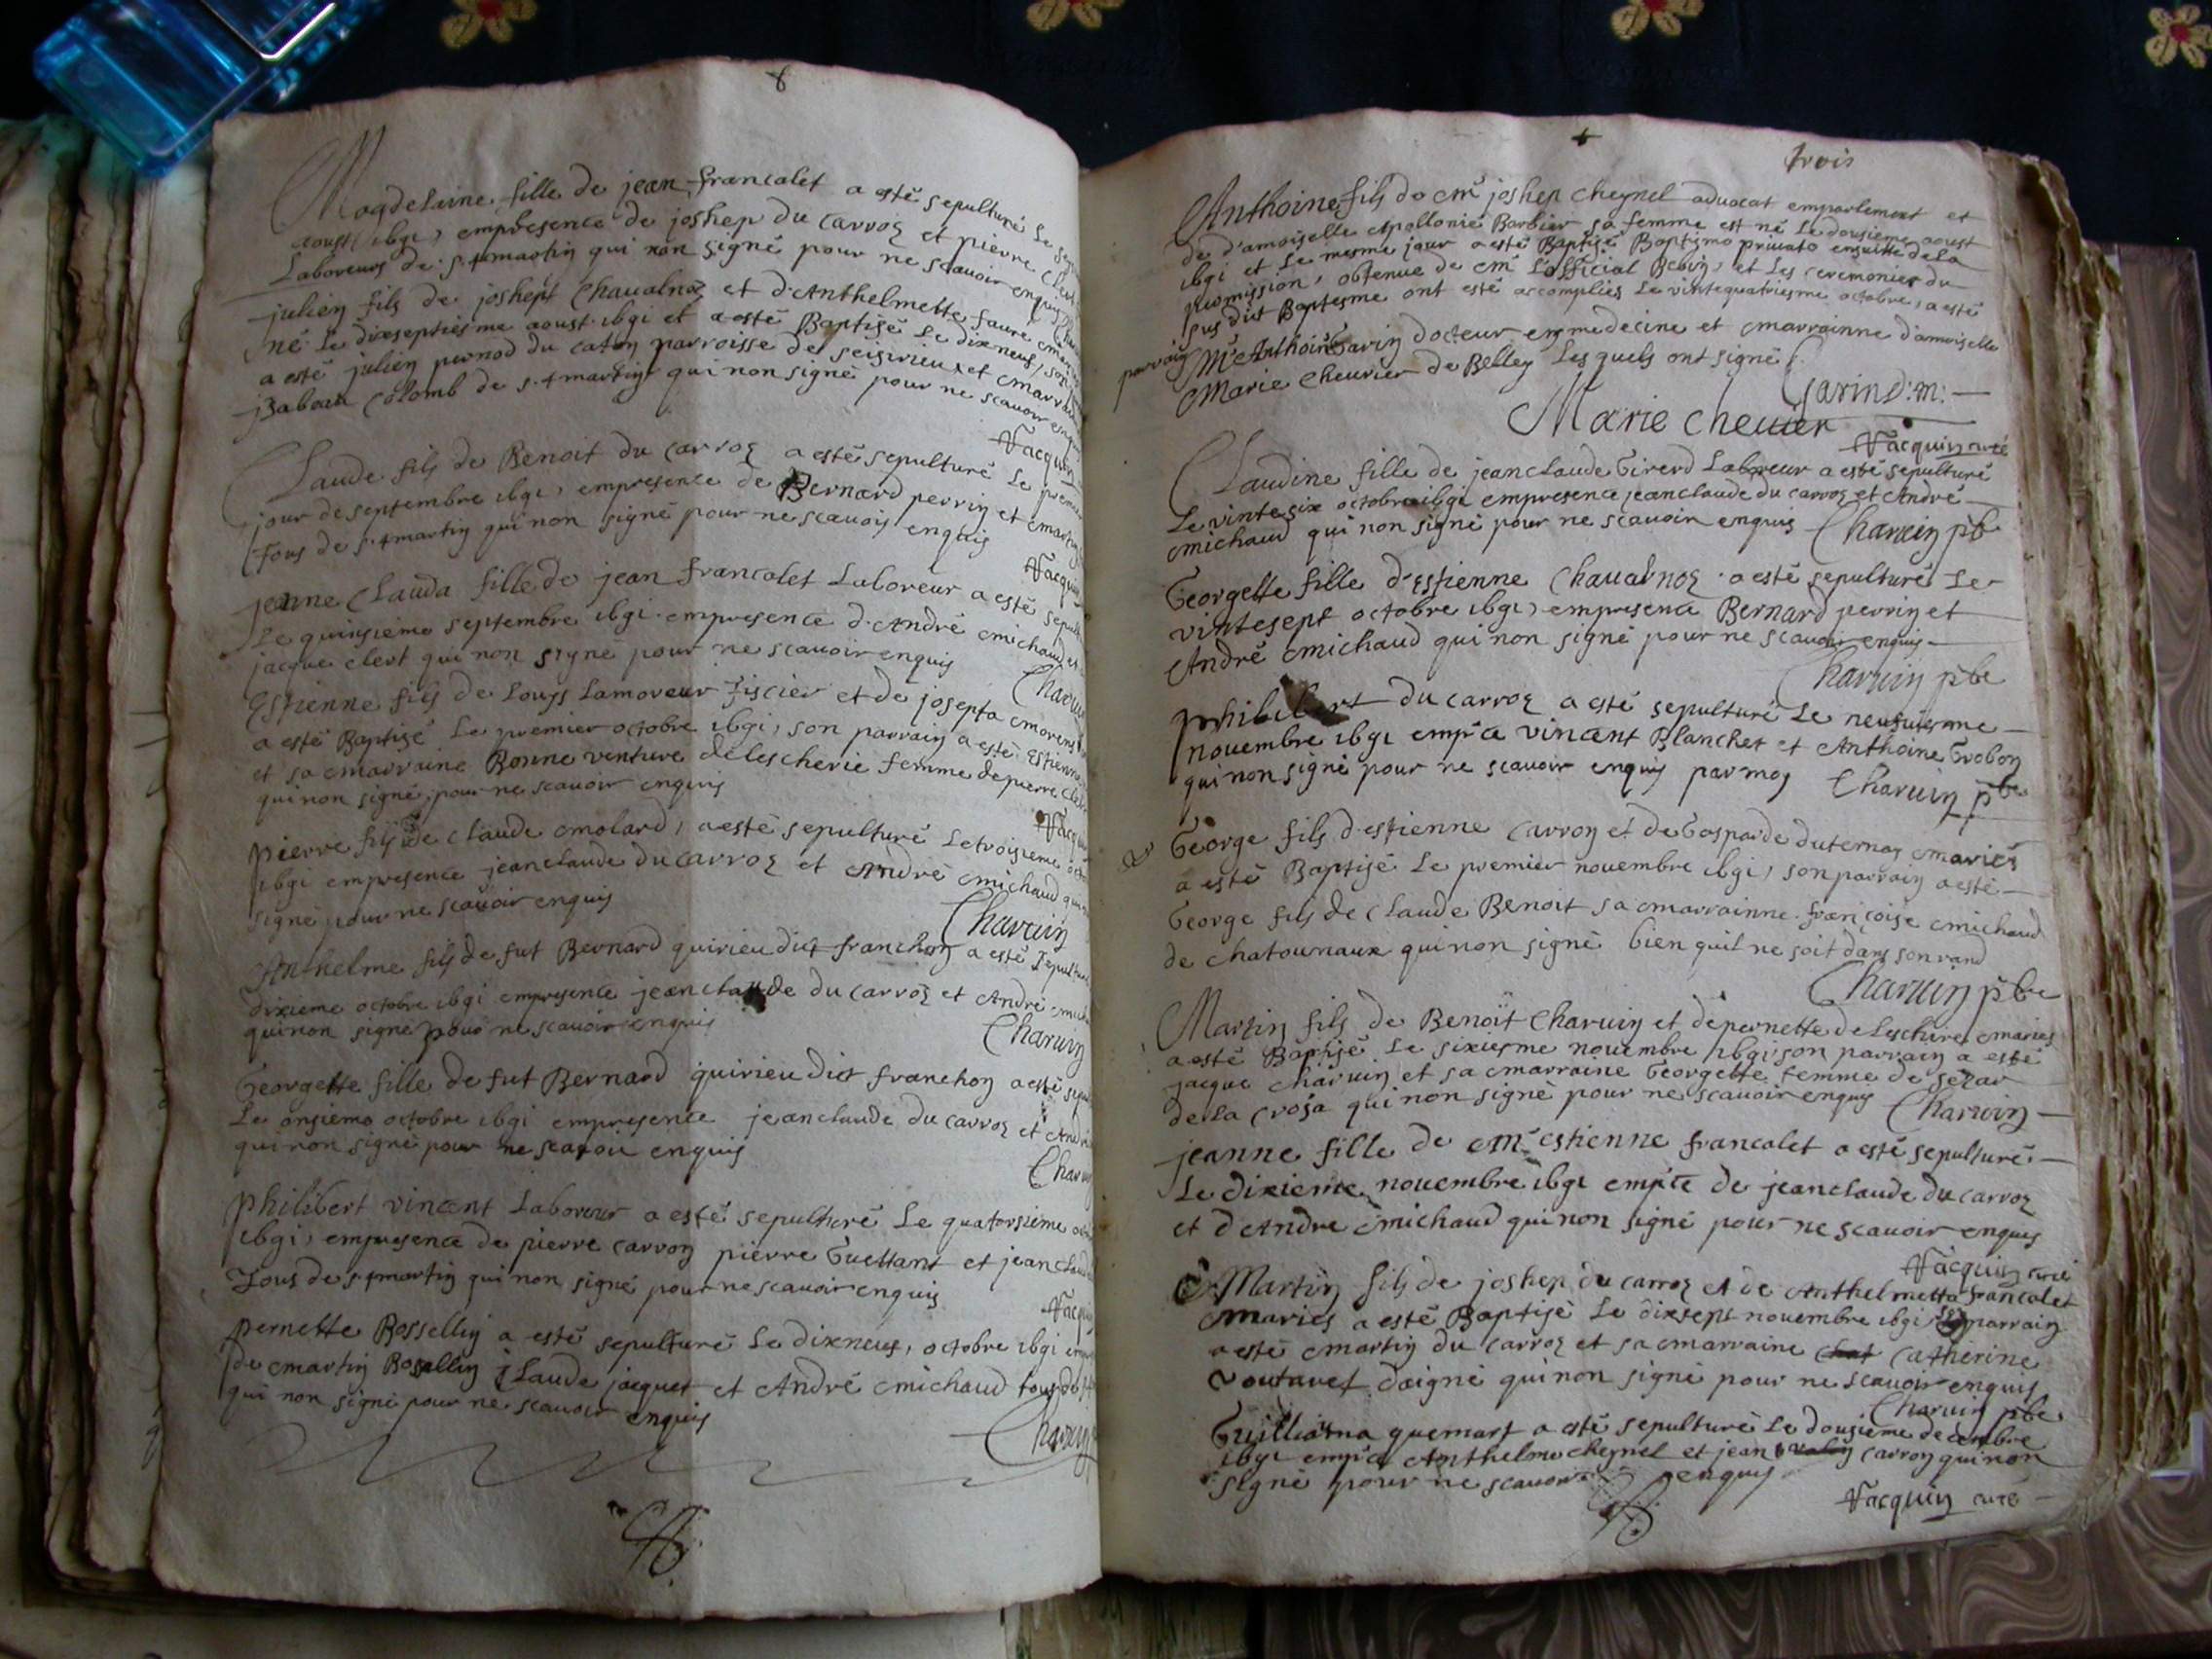 Magdelaine fille de jean francalet a esté sepulturé le
aoust ibgi, empresence de joshep du carroz et pierre
Laboreurs de s.t martin qui non signé pour ne scauoir enquis
julien fils de joshept Chaualnoz et d'Anthelmette faure
né le dixseptiesme aoust ibgi et a esté Baptisé le dixneuf, son
a esté julien pernod du caton parroisse de seisirieux et
jsabeau Colomb de s.t martin qui non signé pour ne scauoir
Vacquin
Claude fils de Benoit du carroz a esté sepulturé le premier
jour de septembre ibgi, empresence de Bernard perrin et
tous de s.t martin qui non signé pour ne scauoir enquis
Vacquin
jeanne Clauda fille de jean francalet Laboreur a esté
le quinsieme septembre ibgi empresence d'André michaud et
jacque clert qui non signé pour ne scauoir enquis
Charuin
Estienne fils de Louys Lamoreur fiscier et de josepta
a esté Baptisé le premier octobre ibgi, son parrain a esté Estienne
et sa marraine Bonne venture delescherie femme de pierre
qui non signé pour ne scauoir enquis
Vacquin
pierre fils de Claude molard, a esté sepulturé le troisieme
ibgi empresence jeanclaude du carroz et André michaud
signé pour ne scauoir enquis
Charuin
Anthelme fils de fut Bernard quirieu dict franchon a esté
dixieme octobre ibgi empresence jeanclaude du carroz et André
qui non signé pour ne scauoir enquis
Charuin
Georgette fille de fut Bernard quirieu dict franchon a esté
le onsieme octobre ibgi empresence jeanclaude du carroz et
qui non signé pour ne scauoir enquis
Charuin
philibert vincent Laboreur a esté sepulturé le quatorsieme
ibgi, empresence de pierre carron pierre Guettant et jean
Tous de s.t martin qui non signé pour ne scauoir enquis
Vacquin
pernette Rossellin a esté sepulturé le dixneuf, octobre ibgi
de martin Rosellin Claude jacquet et André michaud tous de
qui non signé pour ne scauoir enquis
Charuin
trois
Anthoine fils de m.r joshep cheynel aduocat emparlement et
de d'amoiselle appollonie Barbier sa femme est né le dousieme aoust
ibgi et le mesme jour a esté Baptisé Baptismo priuato ensuitte de la
permission, obtenue de m.r L'official Bebin, et les ceremonies du
sus dict Baptesme ont esté accomplies le vintequatriesme octobre, a esté
parrain M.e Anthoine Garin docteur en medecine et marrainne d'amoiselle
Marie Cheurier de Belley les quels ont signé
Garin D: m:
Marie cheuier
Vacquin curé
Claudine fille de jeanclaude Girerd Laboreur a esté sepulturé
le vintesix octobre ibgi empresence jeanclaude du carroz et André
michaud qui non signé pour ne scauoir enquis Charuin pb
Georgette fille d'Estienne Chaualnoz a esté sepulturé le
vintesept octobre ibgi, empresence Bernard perrin et
André michaud qui non signé pour ne scauoir enquis
Charuin pbe
philibert du carroz a esté sepulturé le neufuiesme
nouembre ibgi emp.ce vincent Blanchet et Anthoine Trobon
qui non signé pour ne scauoir enquis par moy Charuin pbe
George fils d'estienne carron et de Gasparde dutemay mariés
a esté Baptisé le premier nouembre ibgi, son parrain a esté
George fils de Claude Benoit sa marrainne françoise michaud
de chatounaux qui non signé bien quil ne soit dans son rand
Charuin pbre
Martin fils de Benoit Charuin et de pernette de Leschire mariés
a esté Baptisé le sixiesme nouembre ibgi, son parrain a esté
jacque Charuin et sa marraine Georgette femme de sezar
de la crosa qui non signé pour ne scauoir enquis Charuin
jeanne fille de m.e estienne francalet a esté sepulturé
le dixieme nouembre ibgi emp.ce de jeanclaude du carroz
et d'Andre michaud qui non signé pour ne scauoir enquis
Vacquin curé
Martin fils de joshep du carroz et de Anthelmetta francalet
mariés a esté Baptisé le dixsept nouembre ibgi son parrain
a esté martin du carroz et sa marraine chat catherine
voutaret daigne qui non signé pour ne scauoir enquis
Charuin pbe
Guilliema quemart a esté sepulturé le dousieme decembre
ibgi emp.ce Anthelme cheynel et jean carron qui non
signé pour ne scauoir enquis
Vacquin curé